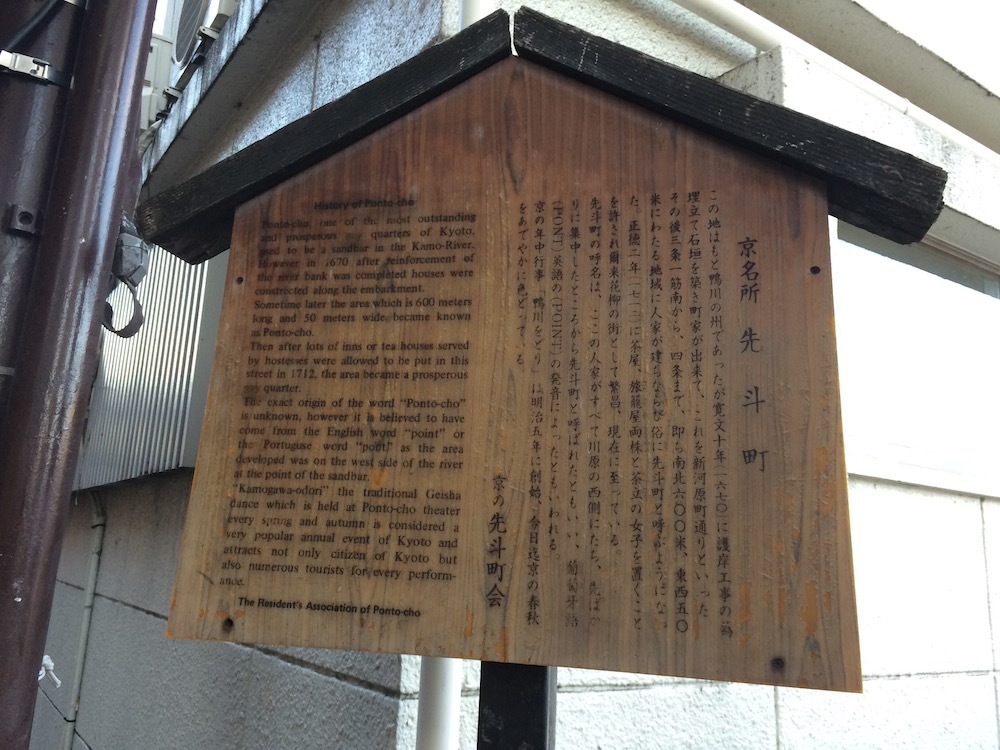 History of Ponto-cho
Ponto-cho, one of the most outstanding
and prosperous gay quarters of Kyoto,
used to be a sandbar in the Kamo-River.
However in 1670 after reinforcement of
the river bank was completed houses were
constructed along the embarkment.
Sometime later the area which is 600 meters
long and 50 meters wide, became known
as Ponto-cho.
Then after lots of inns or tea houses served
by hostesses were allowed to be put in this
street in 1712, the area became a prosperous
gay quarter.
The exact origin of the word "Ponto-cho"
is unknown, however it is believed to have
come from the English word "point" or
the Portuguse word "pont" as the area
developed was on the west side of the river
at the point of the sandbar.
"Kamogawa-odori" the traditional Geisha
dance which is held at Ponto-cho theater
every spring and autumn is considered a
very popular annual event of Kyoto and
attracts not only citizen of Kyoto but
also numerous tourists for every perform-
ance.
The Resident's Association of Ponto-cho
京名所 先斗町
この地はもと鴨川の州であったが寛文十年(一六七〇)に護岸工事の為
埋立て石垣を築き町家が出来て、これを新河原町通りといった
その後三条一筋南から、四条まで、即ち南北六〇〇米、東西五〇
米にわたる地域に人家が建ちならび俗に先斗町と呼ぶようになっ
た。正徳二年(一七一二)に茶屋、旅籠屋両株と茶立の女子を置くこと
を許され爾来花柳の街として繁昌、現在に至っている。
先斗町の呼名は、ここの人家がすべて川原の西側にたち、先ばか
りに集中したところから先斗町と呼ばれたともいい、葡萄牙語
(PONT)英語の(POINT)の発音によったともいわれる。
京の年中行事「鴨川をどり」は明治五年に創始、今日迄京の春秋
をあでやかに色どっている
京の先斗町会